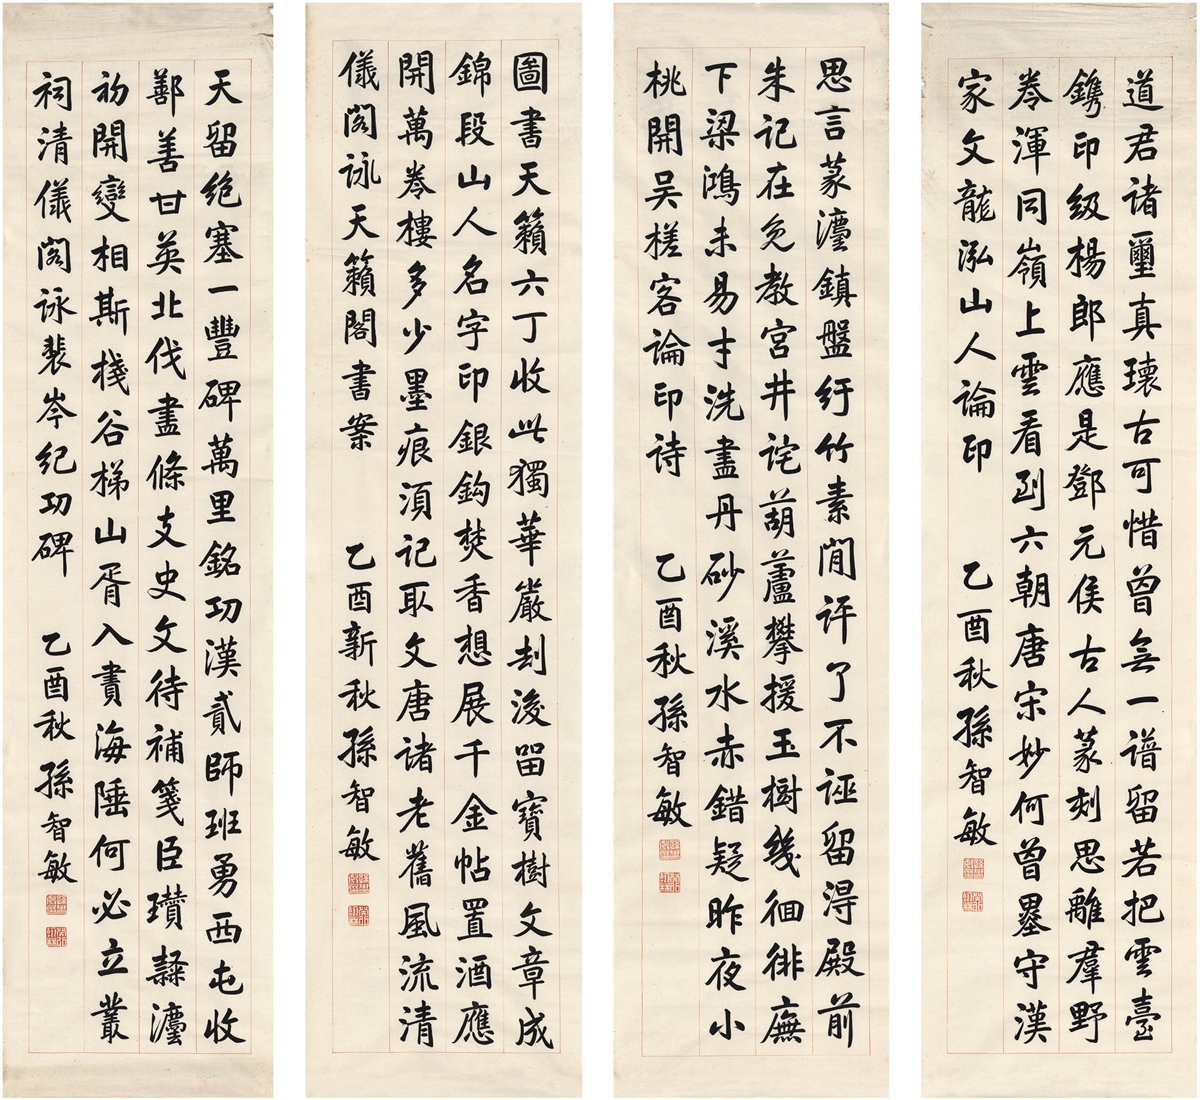 道君諸璽真瓌古可惜曾無一譜留若把雲臺
鐫印級楊郎應是鄧元侯古人篆刻思離羣野
岺渾同嶺上雲看到六朝唐宋妙何曾墨守漢
家文龍泓山人論印 乙酉秋孫智敏
思言篆灋鎮盤紆竹素閒評了不誣留得殿前
朱記在免教宮井詫葫蘆攀援玉樹幾徊徘廡
下梁鴻未易才洗盡丹砂溪水赤錯疑昨夜小
桃開吳槎客論印詩 乙酉秋孫智敏
圖書天籟六丁收此獨華嚴刦後留寶樹文章成
錦段山人名字印銀鈎焚香想展千金帖置酒應
開萬卷樓多少墨痕須記取文唐諸老舊風流清
儀閣詠天籟閣書案 乙酉新秋孫智敏
天留絕塞一豐碑萬里銘功漢貳師班勇西屯收
鄯善甘英北伐盡條支史文待補箋臣瓚隸灋
初開變相斯棧谷梯山胥入畫海陲何必立叢
祠清儀閣詠裴岑紀功碑 乙酉秋孫智敏